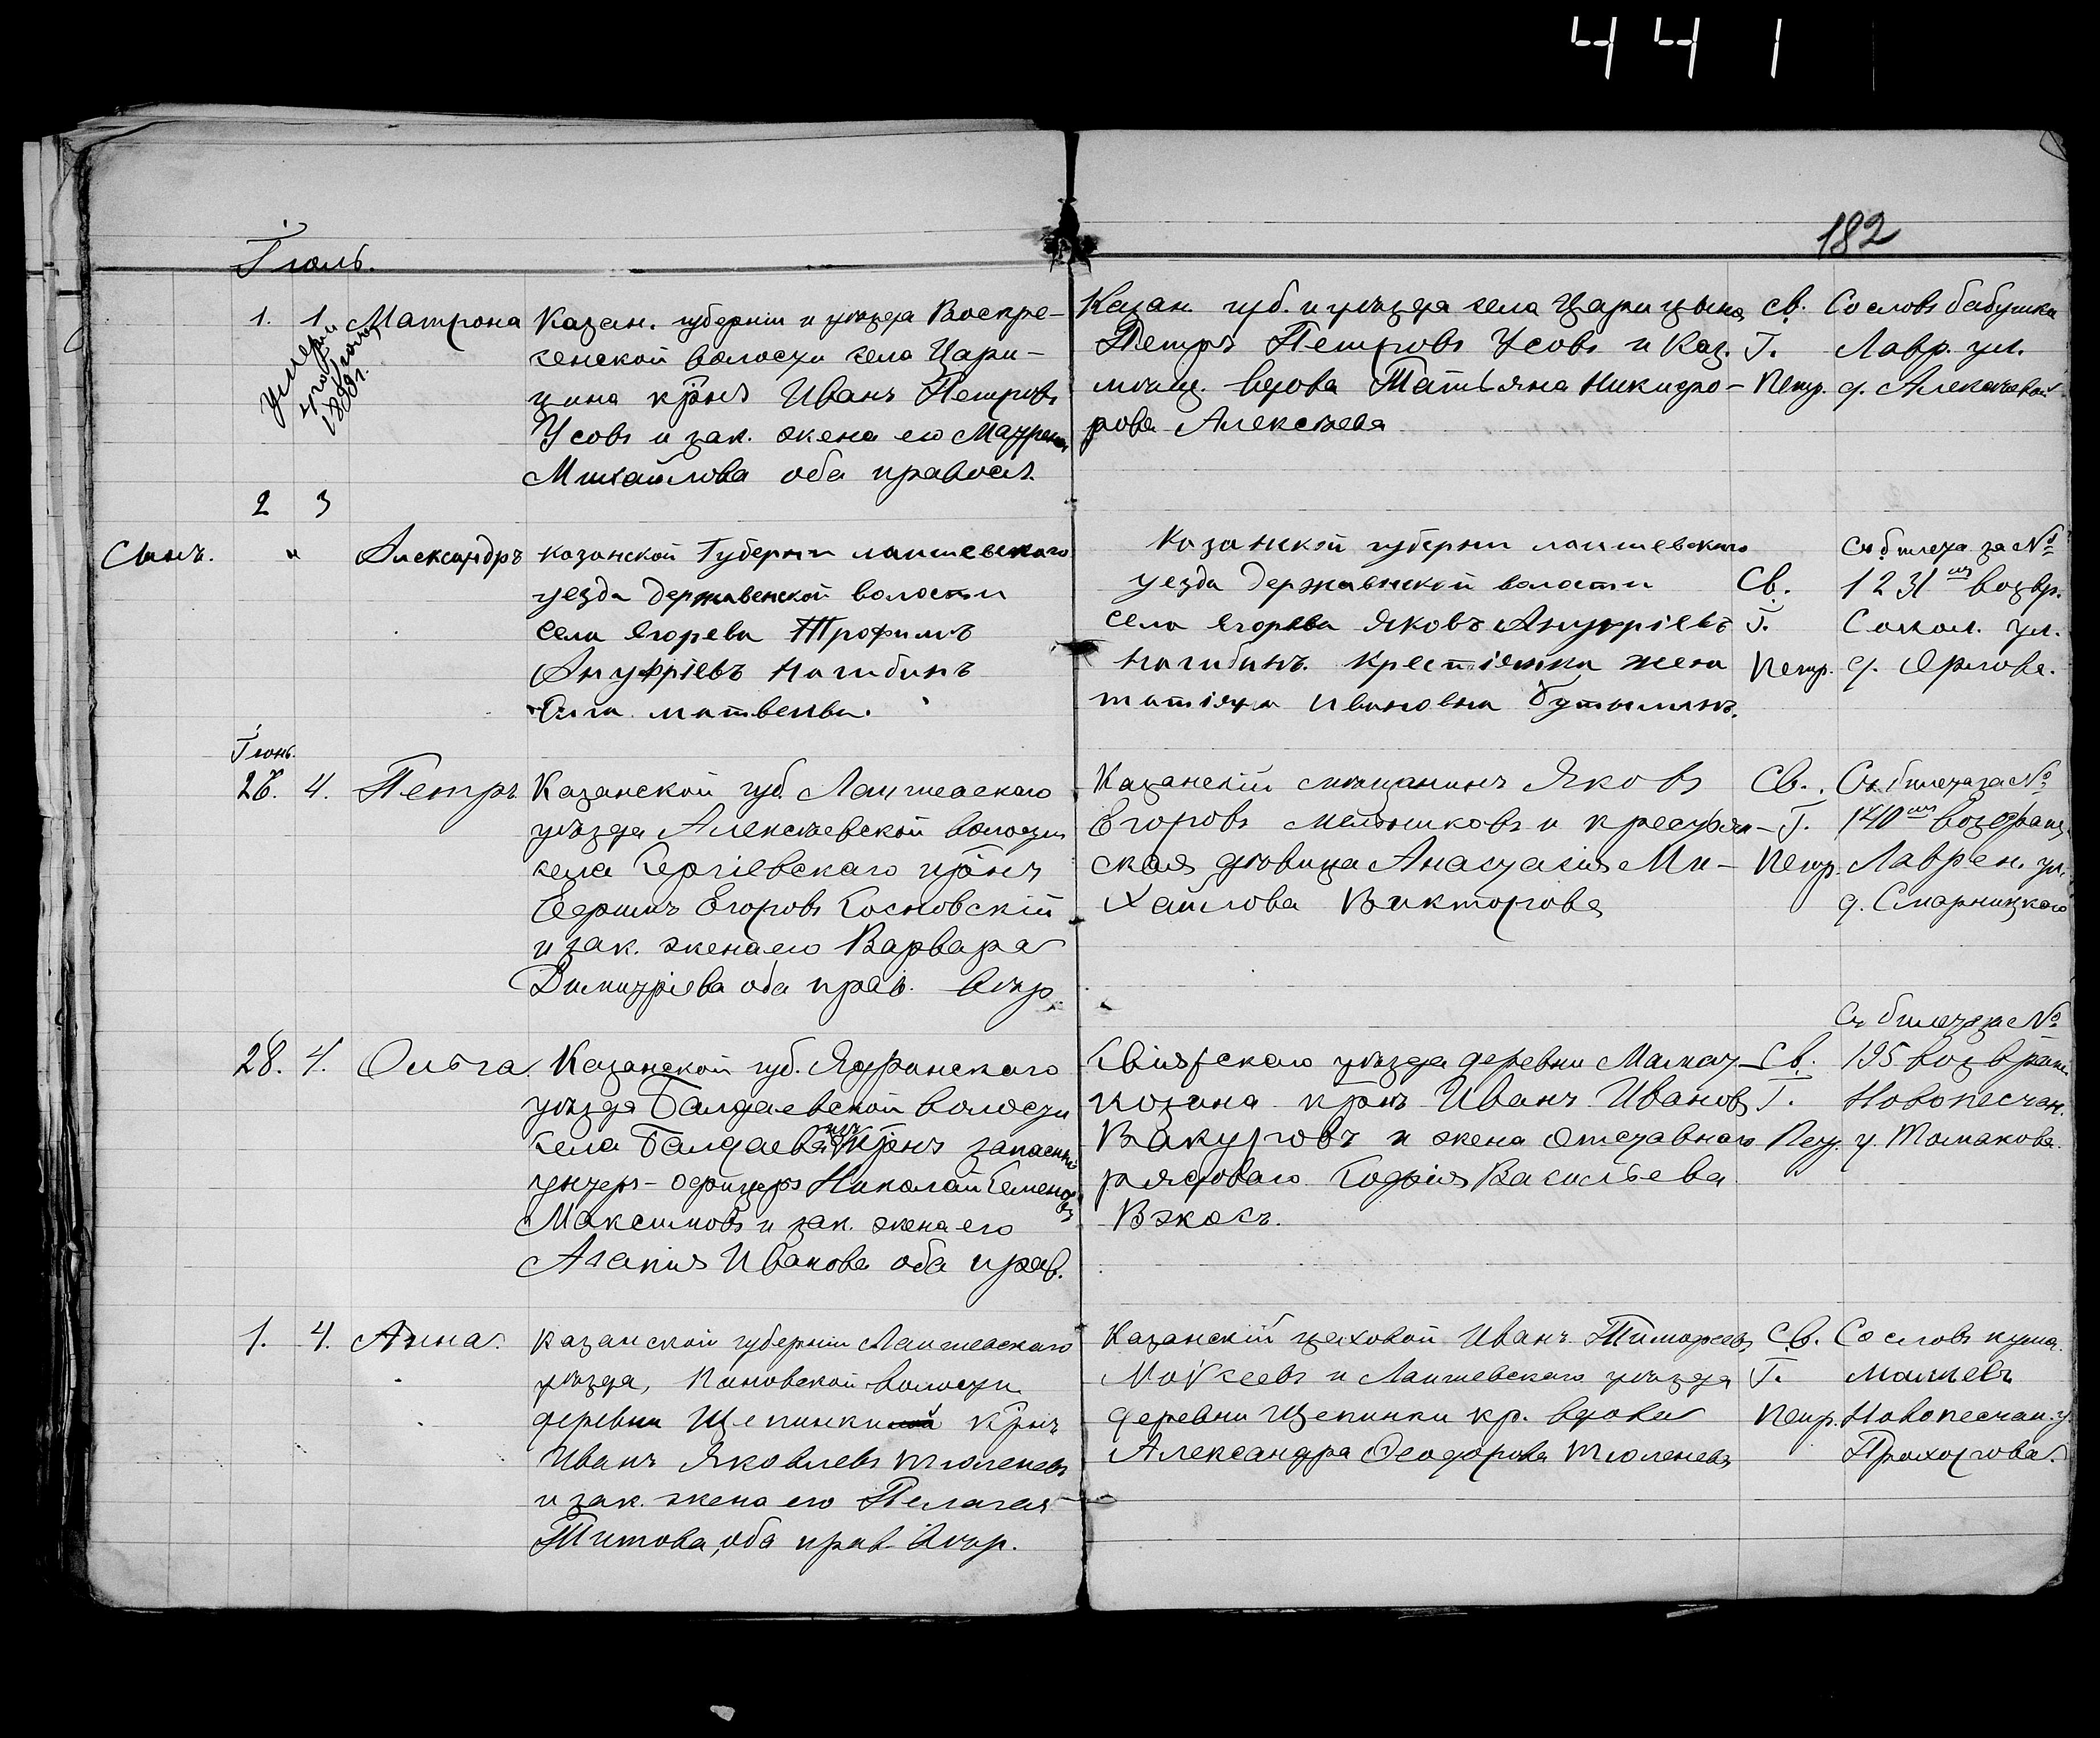 441
182
Іюль.
1. 1. Матрона Казан. губерніи и уѣзда Воскре-
сенской волости села Цари-
цина кр̃нъ Иванъ Петровъ
Усовъ и зак. жена его Матрена
Михайлова оба правосл.
1889 г.
Казан. губ. и уѣзда села Царицына
Петръ Петровъ Усовъ и Каз.
мѣщ. вдова Татьяна Никифо-
рова Алексѣева
Св.
Г.
Петр.
Со словъ бабушки
Лавр. ул.
д. Алексѣевой
2 3
Сынъ. " Александръ казанской Губерни лаишевского
уезда державенской волости
села егорева Трофимъ
Ануфріевъ Нагибинъ
Ольга матвеива.
Казанской губерни лаишевского
уезда державнской воласти
села егорева яковъ Ануфріевъ
Нагибинъ. крестіянка жена
татіяна ивановна бутылинъ.
Св.
Г.
Петр.
Съ билета за №
1231 возвр.
Сокол. ул.
д. Орлова.
Іюнь.
28. 4. Петръ Казанской губ. Лаишевскаго
уѣзда Алексѣевской волости
села Сергіевскаго кр̃нъ
Егоровъ Сосновскій
и зак. жена его Варвара
Димитріева оба прав.
Казанскій мѣщанинъ Яковъ
Егоровъ Мельниковъ и крестьян-
ская дѣвица Анастасія Ми-
хайлова Викторова
Св.
Г.
Петр.
Съ билета за №
140 возвращ.
Лаврен. ул.
д. Смарницкого
28. 4. Ольга Казанской губ. Ядринскаго
уѣзда Балдаевской волости
села Балдаева кр̃нъ запасный
унтеръ-офицеръ Николай Семеновъ
Максимовъ и зак. жена его
Агапія Иванова оба прав.
Свіяжскаго уѣзда деревни Мамат-
козина кр̃нъ Иванъ Ивановъ
Вакуровъ и жена отставнаго
рядоваго Софія Васильева
Св.
Г.
Петр.
Съ билета за №
195 возвращ.
Новопесчан.
у. Томакова.
1. 4. Анна. Казанской губерніи Лаишевскаго
уѣзда, Пановской волости
деревни Щепинки кр̃нъ
Иванъ Яковлевъ Тюленевъ
и зак. жена его Пелагея
Титова, оба прав.
Казанскій цеховой Иванъ Тимофеевъ
Мокѣевъ и Лаишевскаго уѣзда
деревни Щепинки кр. вдова
Александра Феодорова Тюленева
Св.
Г.
Петр.
Со словъ кума
Новопесчан. у.
Прохорова.